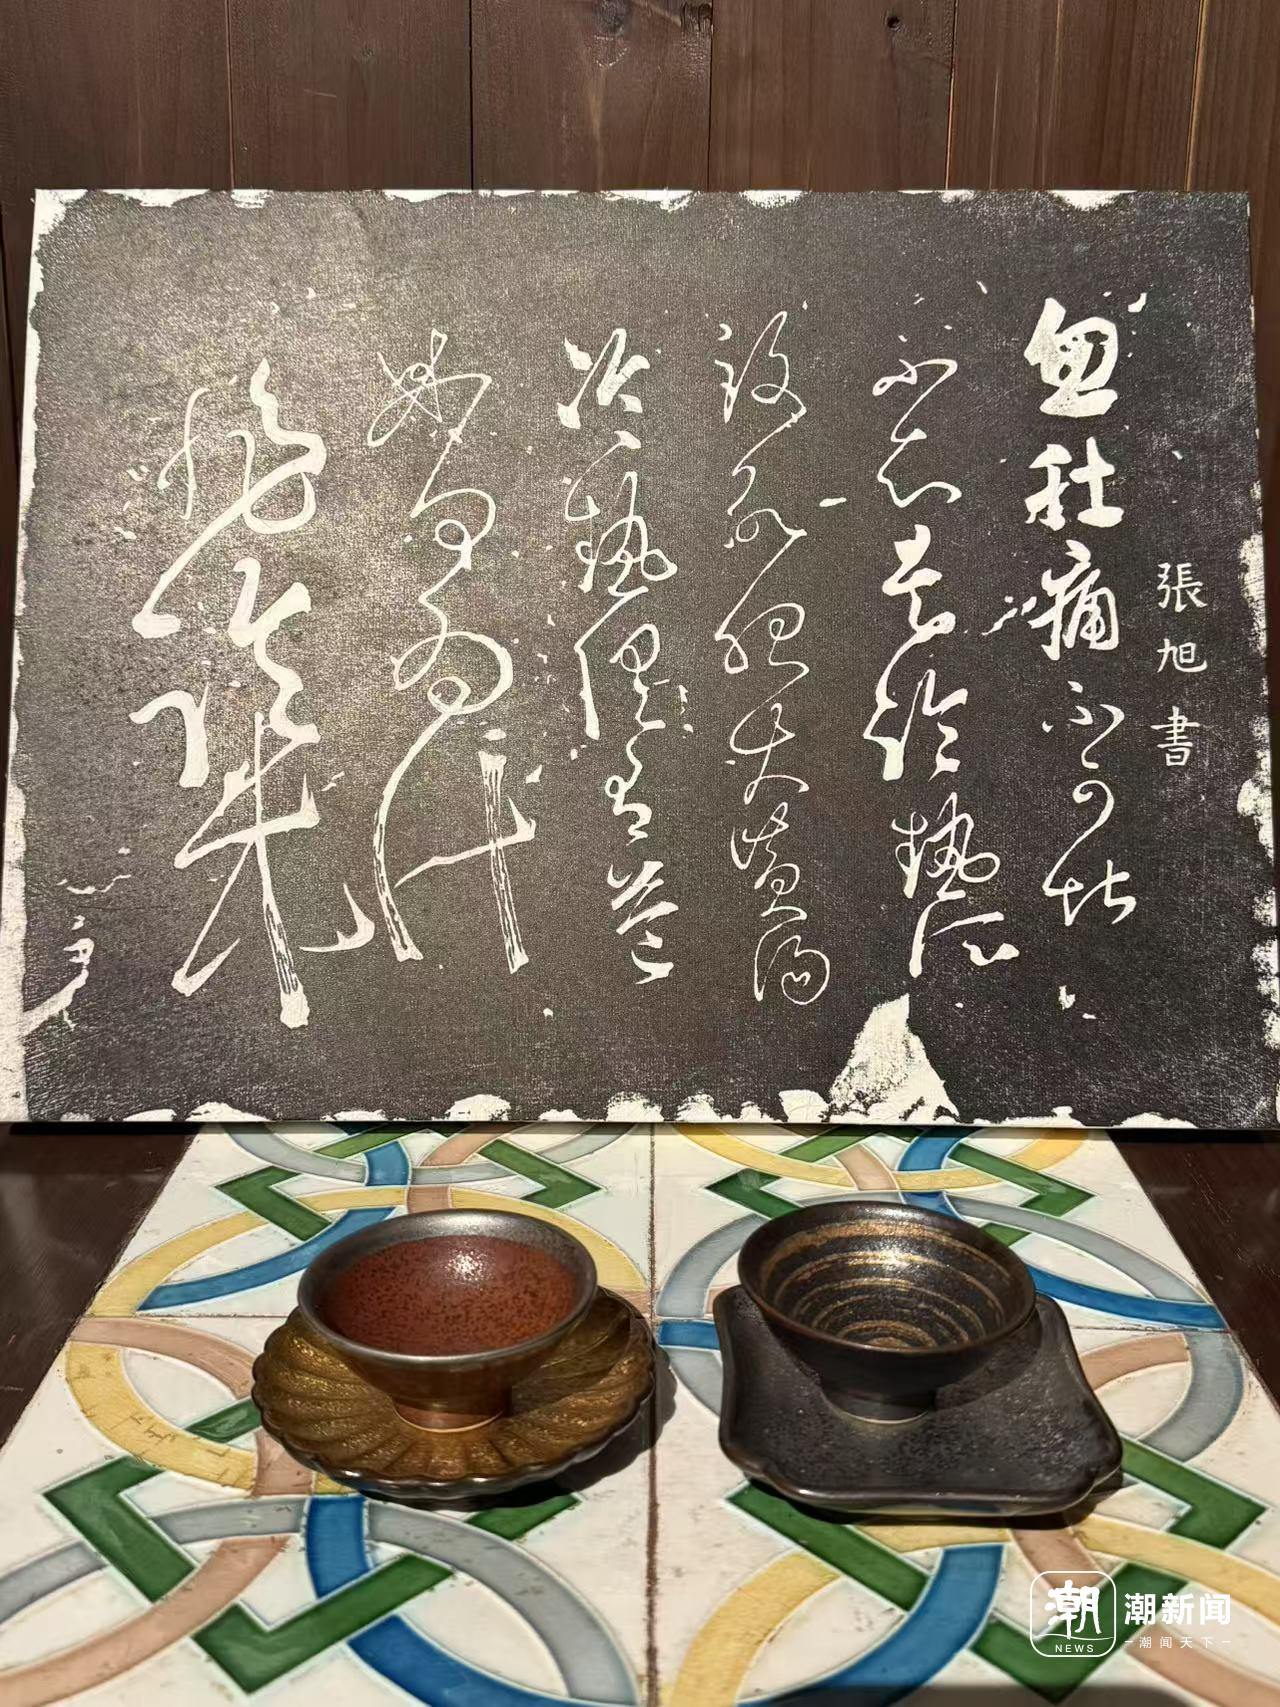 張旭書
忽肚痛不可堪
不知是冷熱所
致欲服大黃湯
冷熱俱有益
如何為計
非臨床
潮
NEWS
潮新聞
潮闻天下